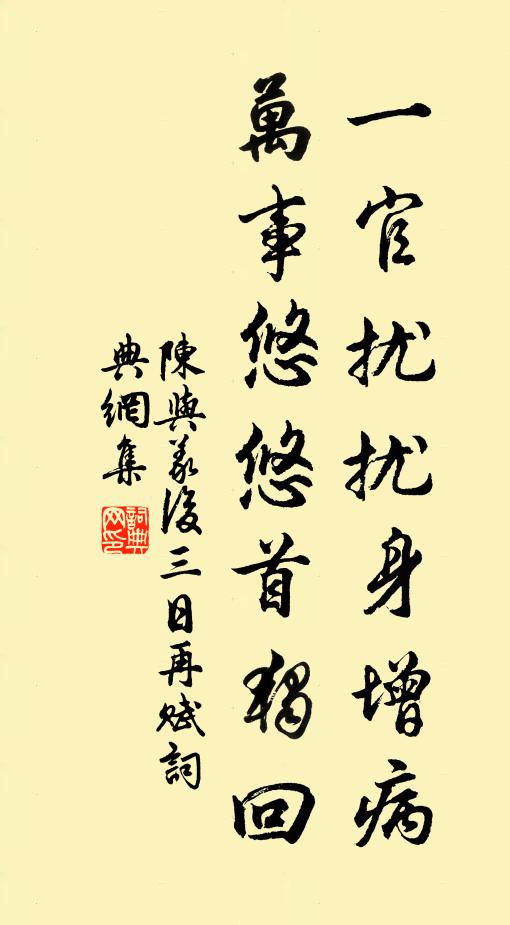 一官扰扰身增病
萬事悠悠首獨回
陳與義後三日再赋詞
典網集
詞典网印